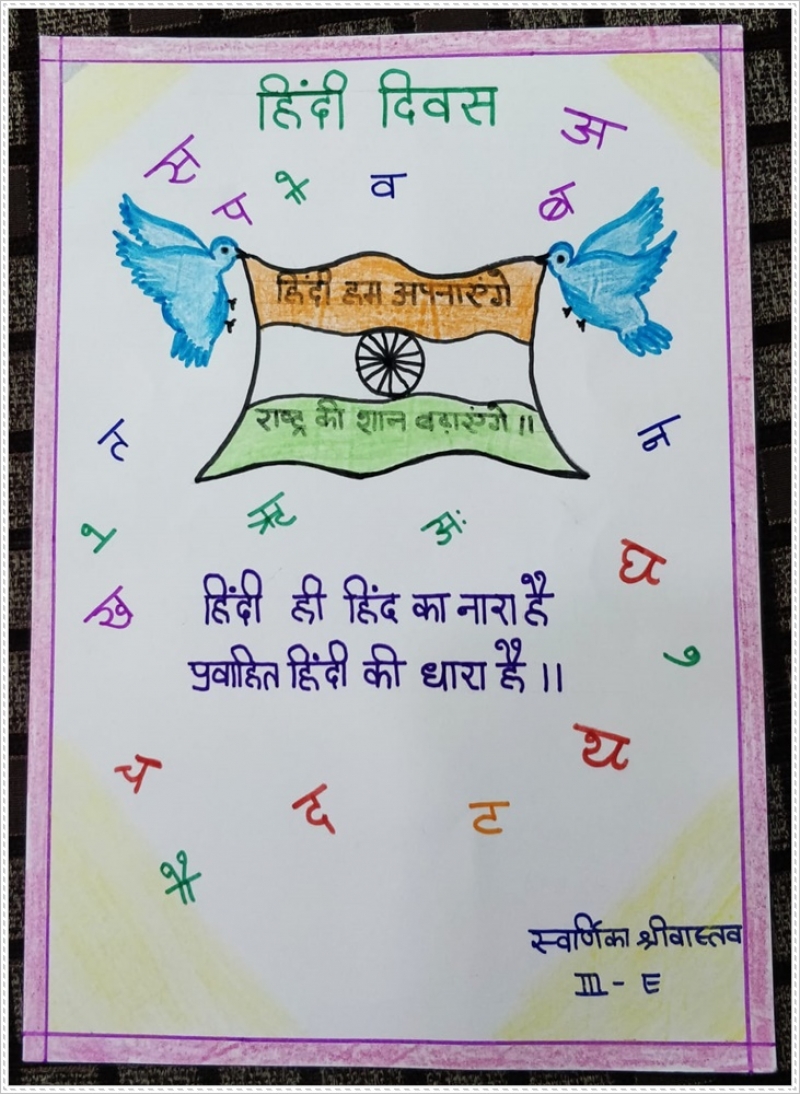 हिंदी दिवस
अ
स
प
व
ब
हिंदी हम अपनाएंगे
राष्ट्र की शान बढ़ाएंगे॥
न
ऋ
अः
घ
ख
हिंदी ही हिंद का नारा है
प्रवाहित हिंदी की धारा है॥
थ
च
द
ट
स्वर्णिका श्रीवास्तव
III - E